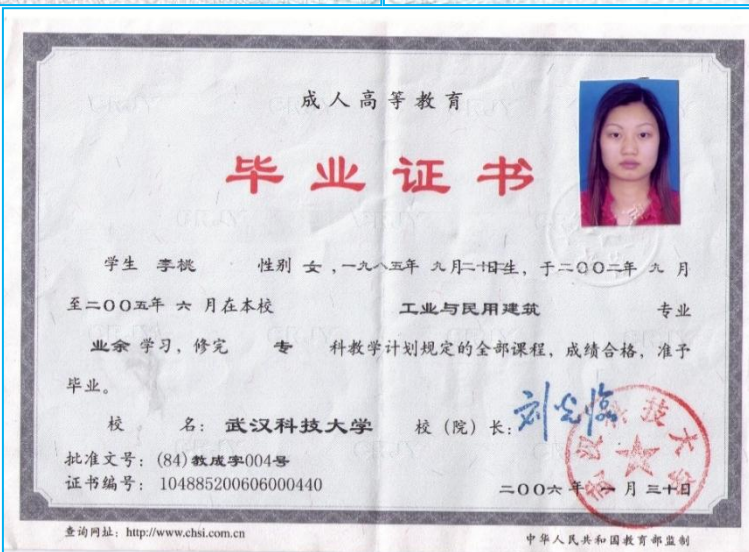 成人高等教育
毕业证书
学生 李桃 性别 女，一九八五年 九月二十日生，于二〇〇二年 九 月
至二〇〇五年 六 月在本校 工业与民用建筑 专业
业余 学习，修完 专 科教学计划规定的全部课程，成绩合格，准予
毕业。
校 名：武汉科技大学 校（院）长：刘光临
批准文号：(84)教成字004号
证书编号：104885200606000440
二〇〇六年 一 月 三十日
武汉科技大学
查询网址：http://www.chsi.com.cn
中华人民共和国教育部监制